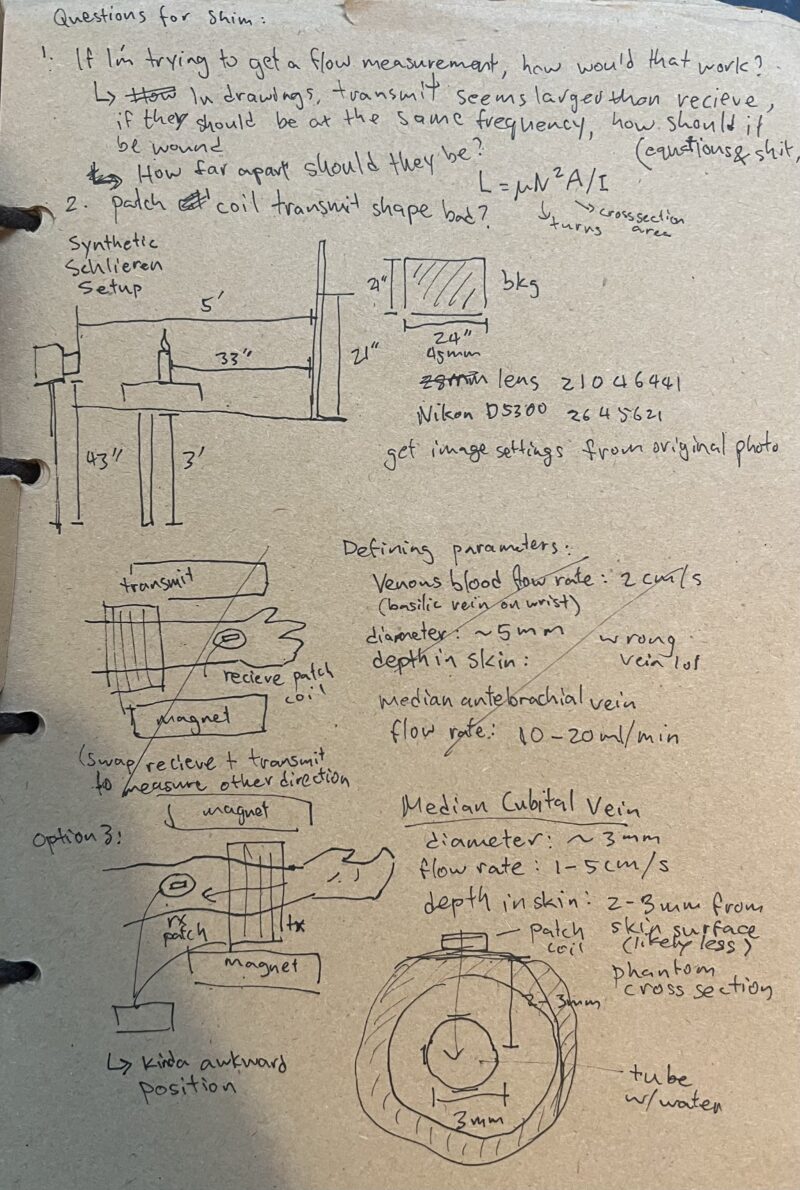 Questions for Shim:
1. If I'm trying to get a flow measurement, how would that work?
↳ How In drawings, transmit seems larger than recieve,
if they should be at the same frequency, how should it
be wound (equations & shit,
↳ How far apart should they be?
L = μN²A/I
↓ turns
→ cross section area
2. patch coil transmit shape bad?
Synthetic
Schlieren
Setup
5'
33"
21"
43"
3'
21"
bkg
24"
45mm
28mm lens 21046441
Nikon D5300 2645621
get image settings from original photo
transmit
recieve patch
coil
magnet
(swap recieve + transmit
to measure other direction
Defining parameters:
Venous blood flow rate: 2 cm/s
(basilic vein on wrist)
diameter: ~5mm
depth in skin:
wrong
vein lol
median antebrachial vein
flow rate: 10-20ml/min
Option 3:
magnet
rx
patch
tx
magnet
↳ kinda awkward
position
Median Cubital Vein
diameter: ~3mm
flow rate: 1-5cm/s
depth in skin: 2-3mm from
skin surface
(likely less)
patch
coil
phantom
cross section
2-3mm
3mm
tube
w/water